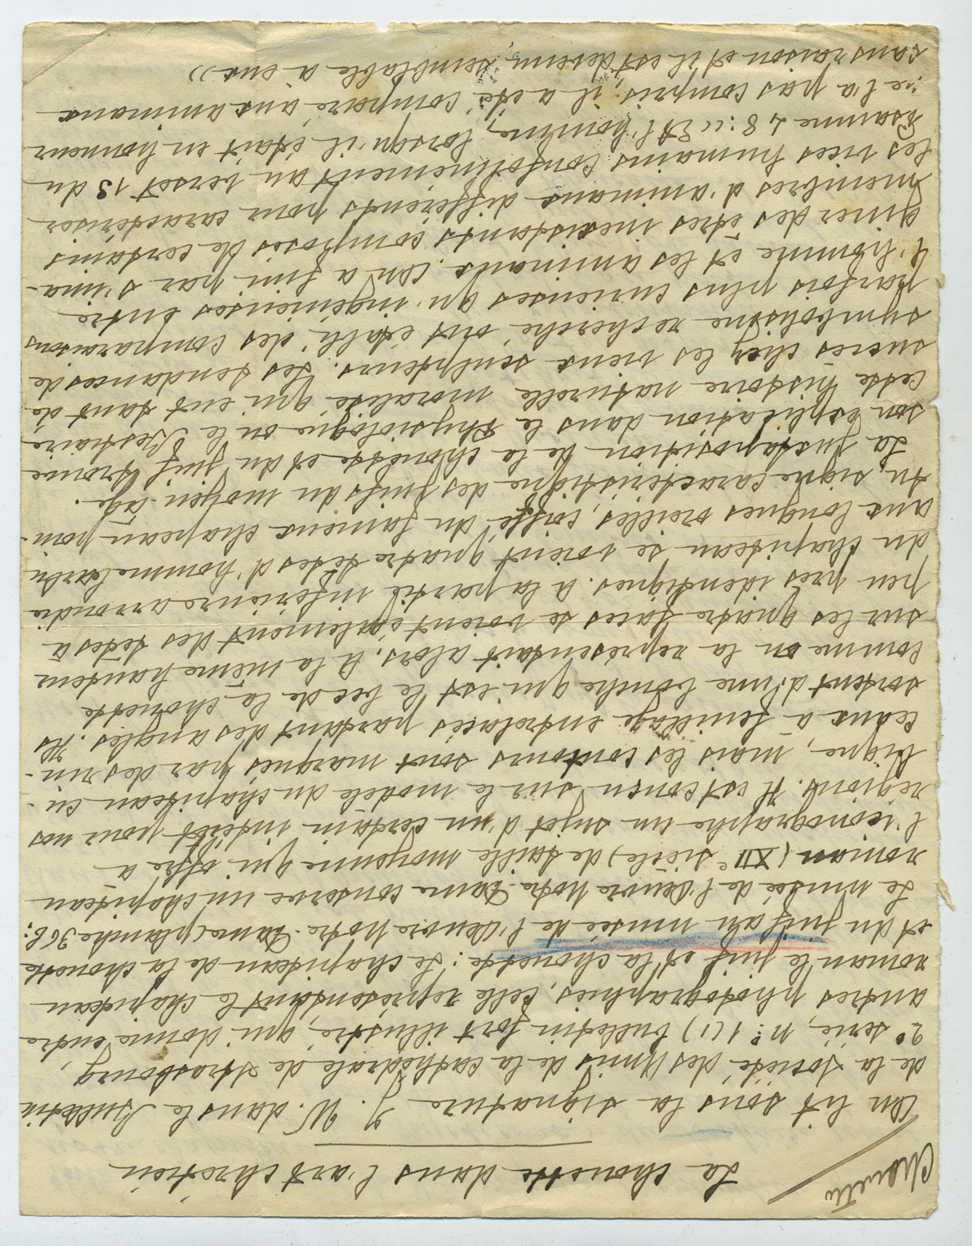 Chouette
La chouette dans l'art chrétien
On lit sous la signature J. W. dans le Bulletin
de la Société des Amis de la cathédrale de Strasbourg,
2e série, n: 1 (1) bulletin fort illustré, qui donne, entre
autres photographies, celle représentant le chapiteau
roman le juif et la chouette: Le chapiteau de la chouette
et du juif au musée de l'Oeuvre Notre-Dame (planche 368:
Le musée de l'Oeuvre Notre-Dame conserve un chapiteau
roman (XIIe siècle) de taille moyenne qui offre à
l'iconographe un sujet d'un certain intérêt pour nos
régions. Il est conçu sur le modèle du chapiteau cu-
bique, mais les contours sont marqués par des rin-
ceaux à feuillage entrelacés partant des angles. Ils
sortent d'une bouche qui est le bec de la chouette
comme on la représentait alors. A la même hauteur
sur les quatre faces se voient également des têtes à
peu près identiques. A la partie inférieure arrondie
du chapiteau se voient quatre têtes d'homme barbu
aux longues oreilles, coiffé du fameux chapeau poin-
tu, signe caractéristique des juifs du moyen-âge.
La juxtaposition de la chouette et du juif trouve
son explication dans le Physiologue ou le Bestiaire
cette histoire naturelle moralisé qui eut tant de
succès chez les vieux sculpteurs. Les tendances de
symbolisme recherché ont établi des comparaisons
parfois plus curieuses qu'ingénieuses entre
l'homme et les animaux. On a fini par s'ima-
giner des êtres inexistants composés de certains
membres d'animaux différents pour caractériser
les vices humains conformément au verset 13 du
Psaume 48: «Et l'homme, lorsqu'il était en honneur
ne l'a pas compris; il a été comparé aux animaux
sans raison et il est devenu semblable à eux»)